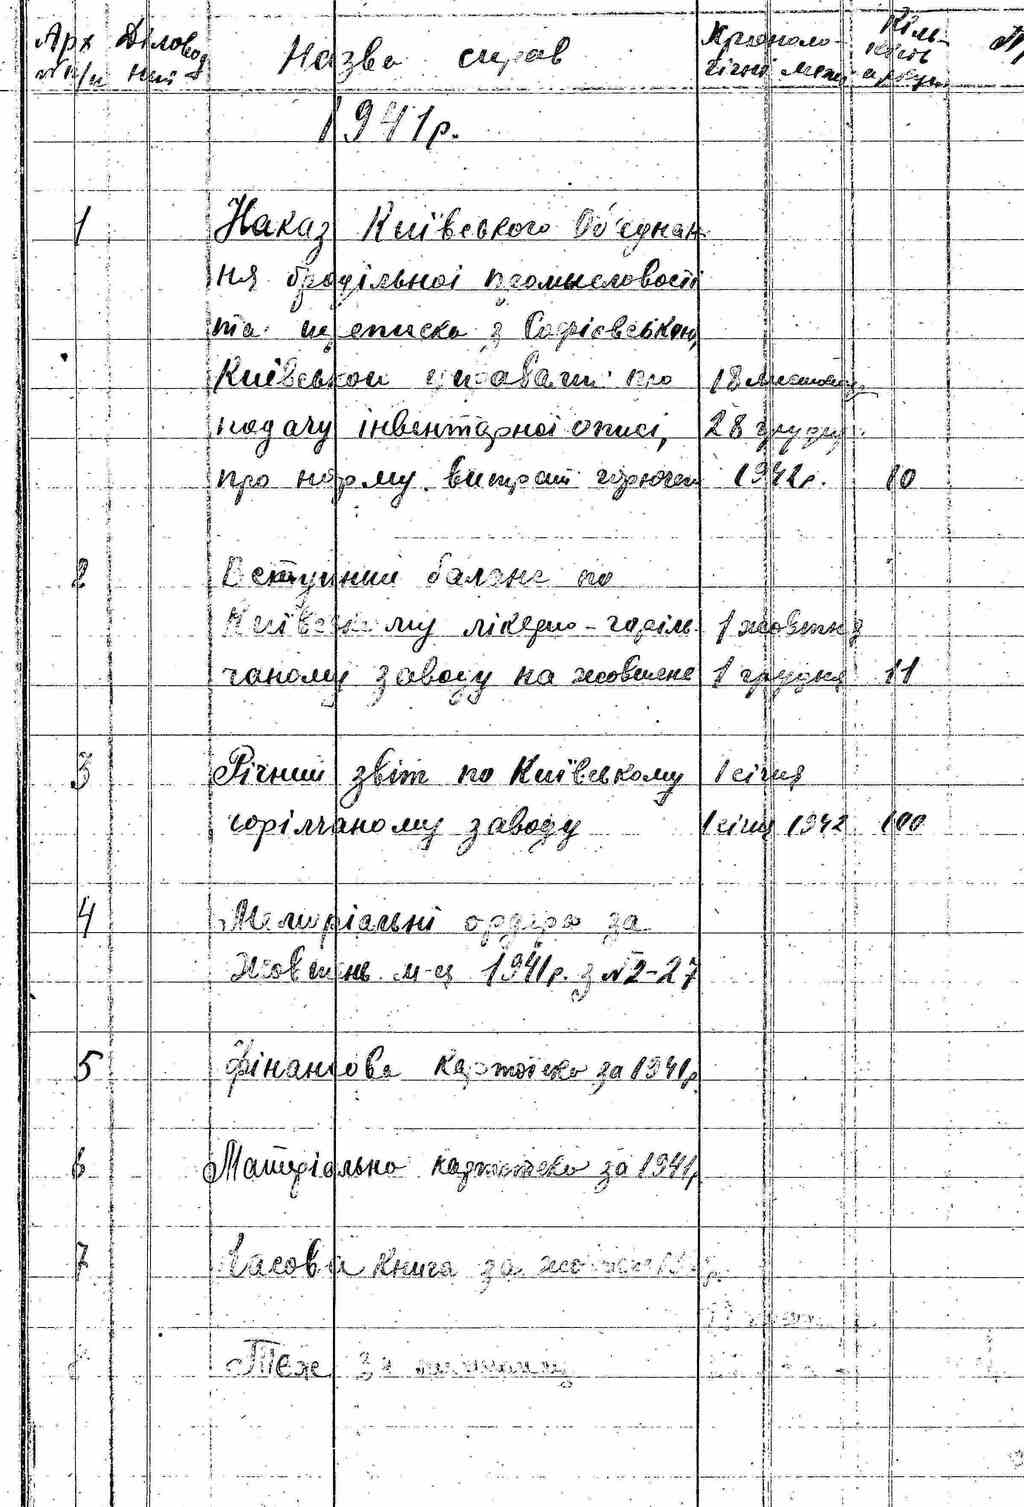 Арх № п/п Діловод ний № Назва справ Хроноло- гічні межі Кіль- кість аркуш.
1941р.
1 Наказ Київського Об'єднан-
ня бродільної промисловості
та з Софієвською,
Київською управами про 18 листопад
подачу інвентарної описі, 28 грудня
про норму витрат горючего 1942р. 10
2 Вступний баланс по
Київському лікерно-горіль- 1 жовтня
чаному заводу на жовтень 1 грудня 11
3 Річний звіт по Київському 1 січня
горілчаному заводу 1 січня 1942 100
4 Меморіальні ордера за
жовтень м-ц 1941р. з №2-27
5 Фінансова картотека за 1941р
6 Матеріальна картотека за 1941р
7 Касова книга за
Теж за